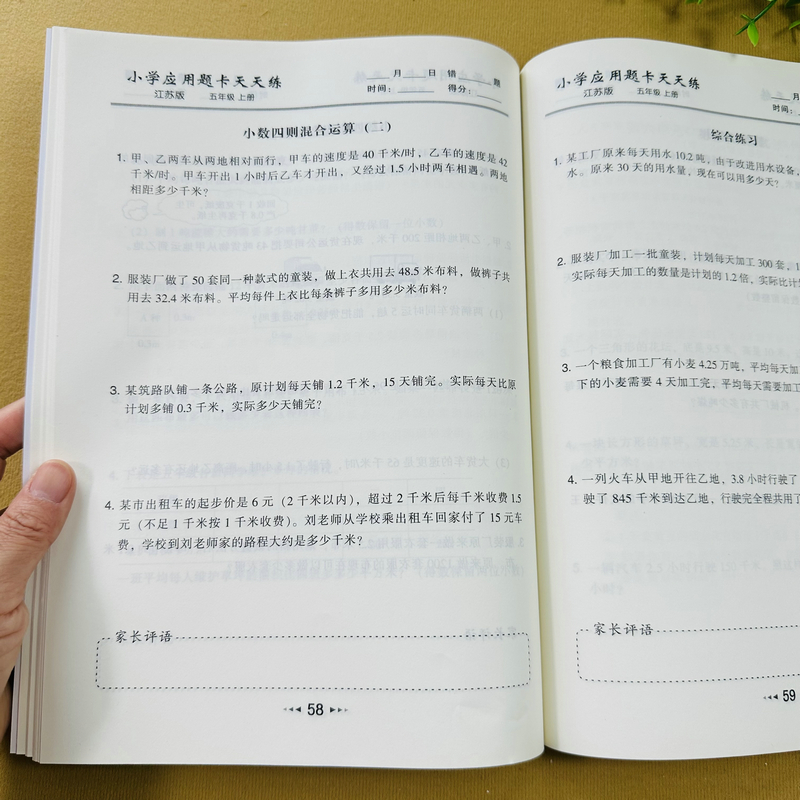 小学应用题卡天天练
江苏版 五年级 上册
月 日 错 题
时间： 得分：
小数四则混合运算（二）
1. 甲、乙两车从两地相对而行，甲车的速度是 40 千米/时，乙车的速度是 42
千米/时。甲车开出 1 小时后乙车才开出，又经过 1.5 小时两车相遇。两地
相距多少千米？
2. 服装厂做了 50 套同一种款式的童装，做上衣共用去 48.5 米布料，做裤子共
用去 32.4 米布料。平均每件上衣比每条裤子多用多少米布料？
3. 某筑路队铺一条公路，原计划每天铺 1.2 千米，15 天铺完。实际每天比原
计划多铺 0.3 千米，实际多少天铺完？
4. 某市出租车的起步价是 6 元（2 千米以内），超过 2 千米后每千米收费 1.5
元（不足 1 千米按 1 千米收费）。刘老师从学校乘出租车回家付了 15 元车
费，学校到刘老师家的路程大约是多少千米？
家长评语
58
小学应用题卡天天练
江苏版 五年级 上册
月
时间：
综合练习
1. 某工厂原来每天用水 10.2 吨，由于改进用水设备，
水。原来 30 天的用水量，现在可以用多少天？
2. 服装厂加工一批童装，计划每天加工 300 套，1
实际每天加工的数量是计划的 1.2 倍，实际比计
3. 一个粮食加工厂有小麦 4.25 万吨，平均每天加
下的小麦需要 4 天加工完，平均每天需要加工
4. 一列火车从甲地开往乙地，3.8 小时行驶了
驶了 845 千米到达乙地，行驶完全程共用了
家长评语
59